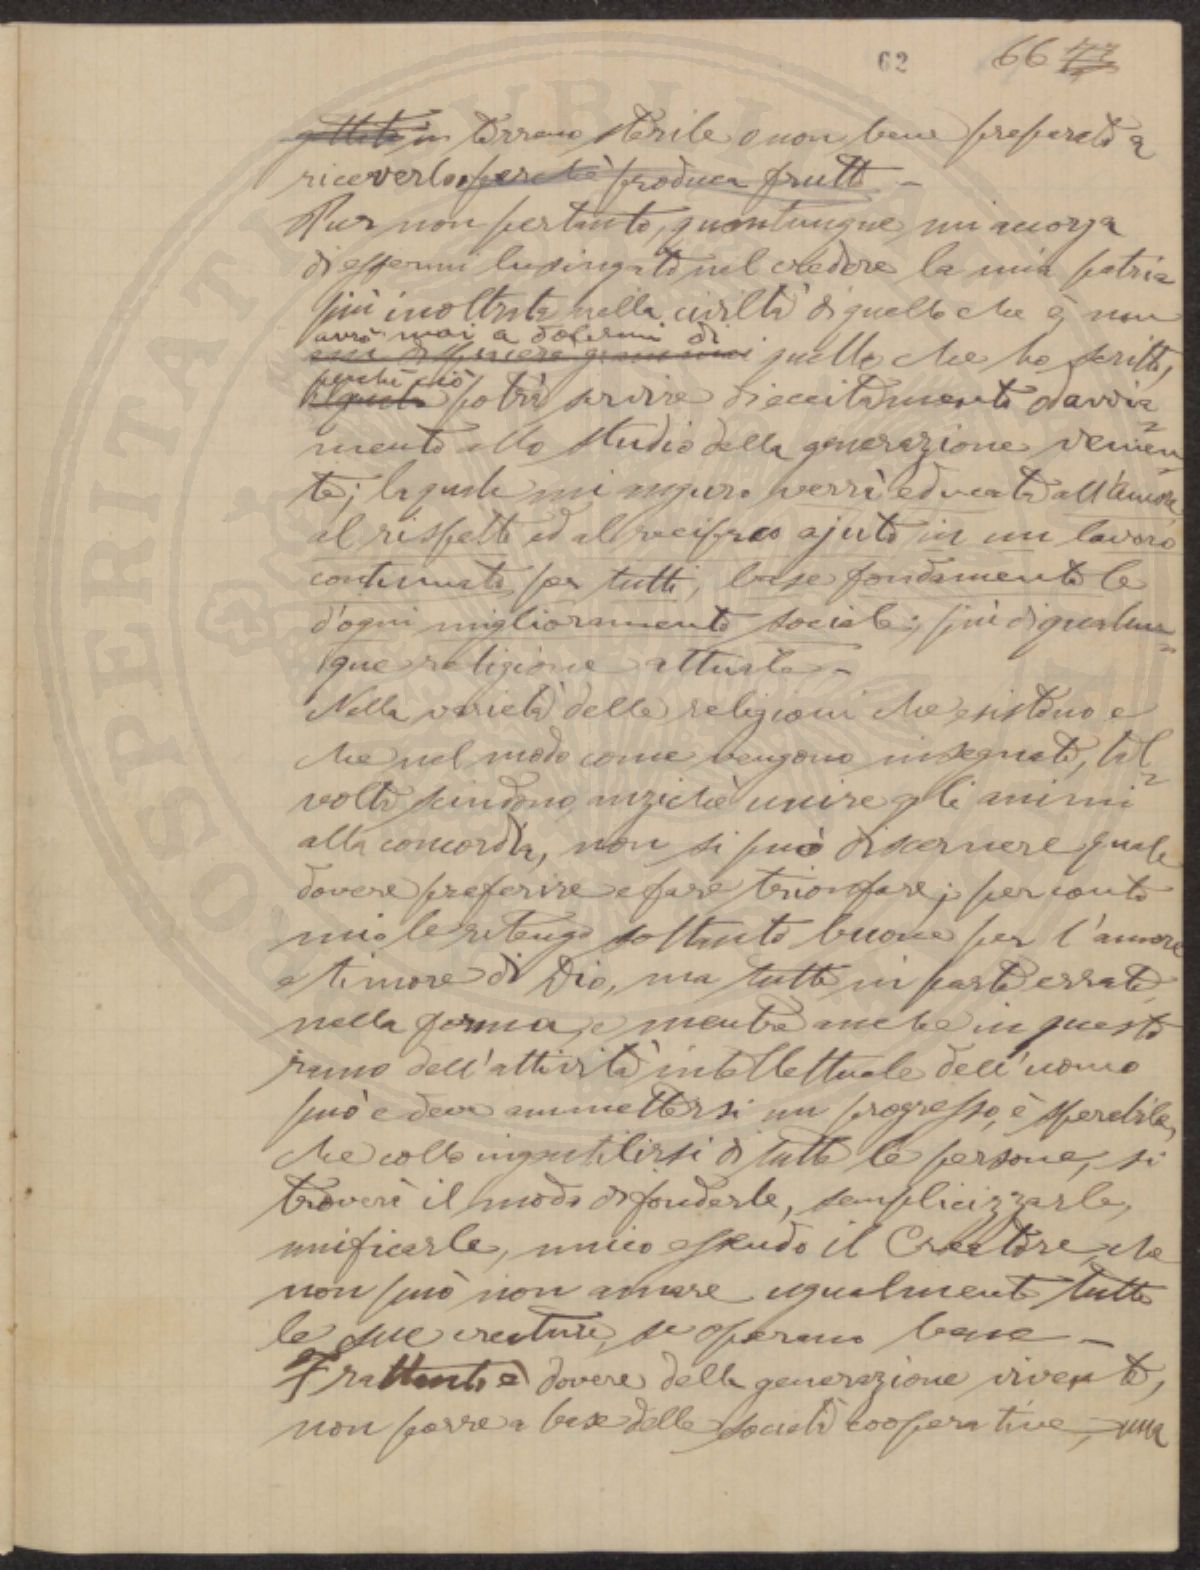 62 66 73
gettate in terreno sterile o non bene preparato a
riceverlo perchè produca frutti -
Pur non pertanto, quantunque mi accorga
di essermi lusingato nel credere la mia patria
più inoltrata nella civiltà di quello che è, non
avrò mai a dolermi di
quello che ho scritto,
perchè ciò
il quale potrà servire di eccitamento od avvia=
mento allo studio della generazione venien=
te; la quale mi auguro verrà educata all'amore
al rispetto ed al reciproco ajuto in un lavoro
continuato per tutti, base fondamentale
d'ogni miglioramento sociale; più di qualun=
que religione attuale -
Nella varietà delle religioni che esistono e
che nel modo come vengono insegnate, tal=
volta scindono, anzichè unire gli animi
alla concordia, non si può discernere quale
dovere preferire e fare trionfare; per conto
mio le ritengo soltanto buone per l'amore
e timore di Dio, ma tutte in parte errate
nella forma, e mentre anche in questo
ramo dell'attività intellettuale dell'uomo
può e deve ammettersi un progresso, è sperabile,
che collo ingentilirsi di tutte le persone, si
troverà il modo di fonderle, semplicizzarle,
unificarle, unico essendo il Creatore, che
non può non amare ugualmente tutte
le sue creature, se operano bene -
Frattanto è dovere della generazione vivente,
non porre a base delle società cooperative, una
PROSPERITATI PUBLICAE